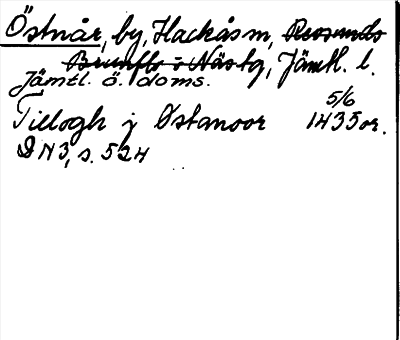 Östnår, by, Hackås m, Ressunds
Brunflo i Nästg, Jämtl. l.
Jämtl. ö. doms.
5/6
Tillogh j Østanoor 1435 or.
DN 3, s. 524